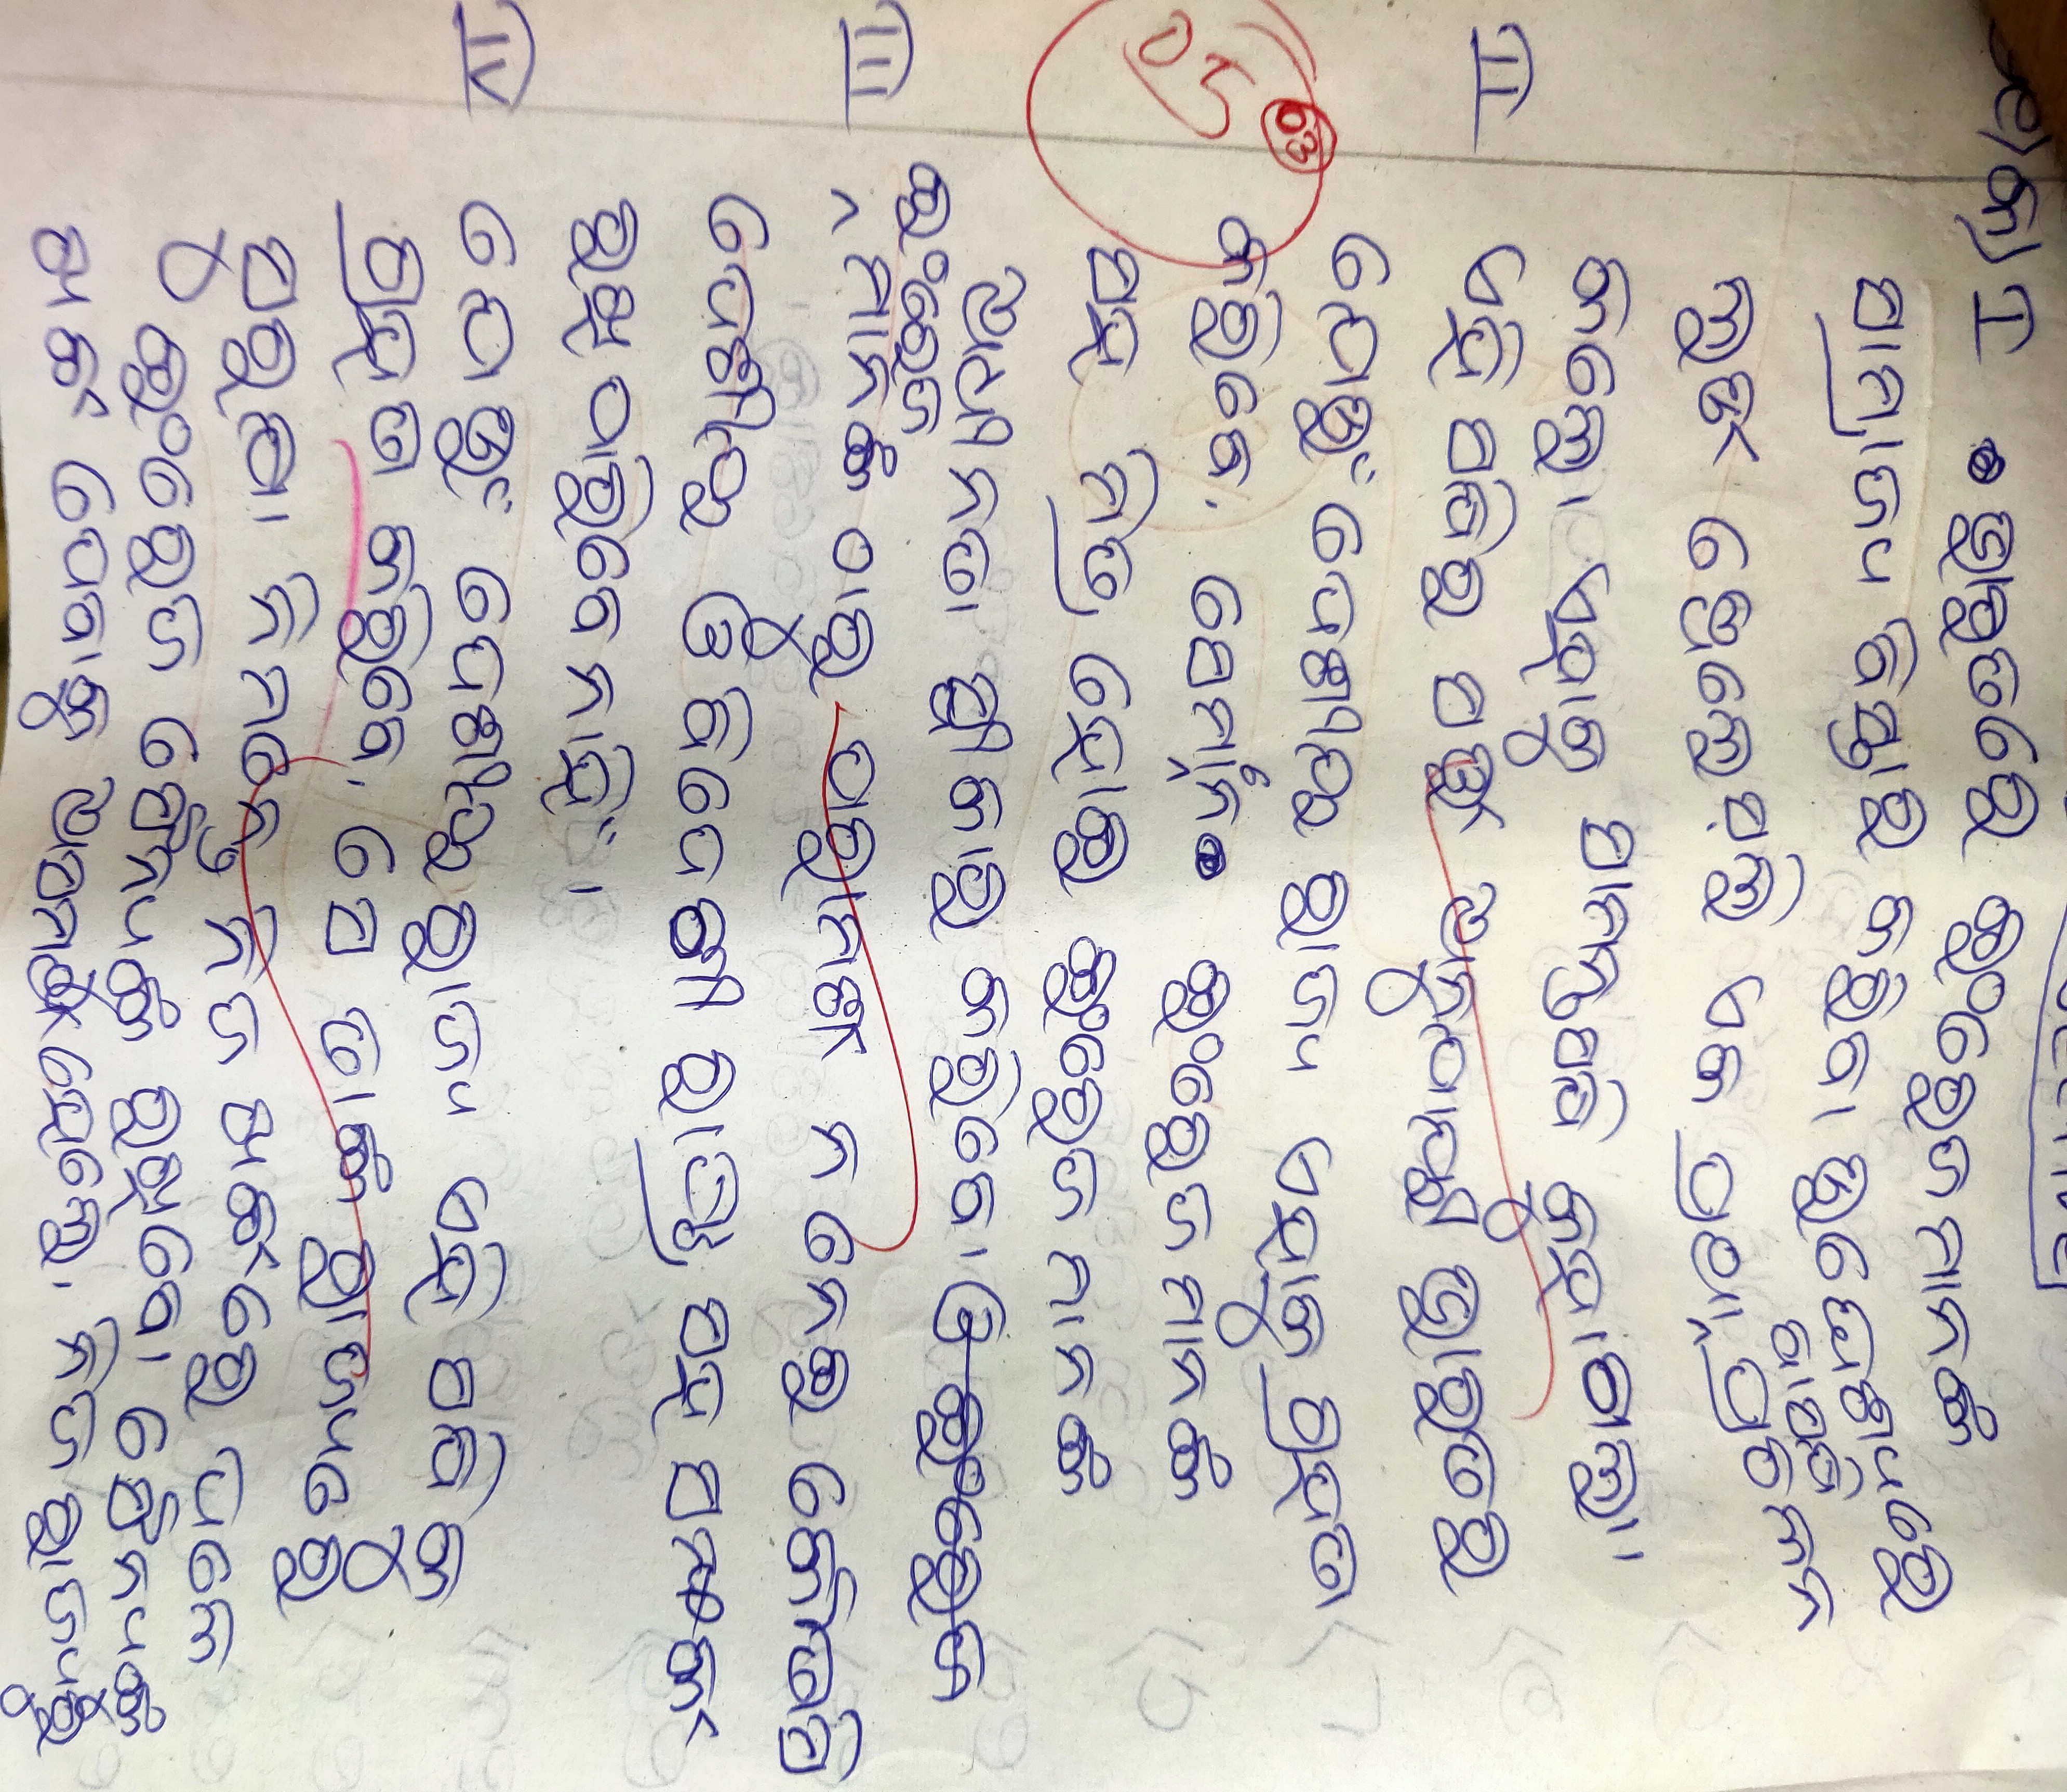 ୧) କ) I ଭାରତରେ ଇଂରେଜ ମାନଙ୍କ
ସାମ୍ରାଜ୍ୟ ବିସ୍ତାର କରିବା ଉଦ୍ଦେଶ୍ୟରେ
ଲର୍ଡ ୱେଲେସଲି ଏକ ପ୍ରଥା ବା ସନ୍ଧି ପ୍ରଚଳନ
କଲେ। ଏହାକୁ ସାମନ୍ତସନ୍ଧି କୁହାଗଲା।
II ଏହି ସନ୍ଧିର ସର୍ତ୍ତ ଅନୁଯାୟୀ ଭାରତର
ଯେଉଁ ଦେଶୀୟ ରାଜ୍ୟ ଏହାକୁ ଗ୍ରହଣ
03
05
କରିବେ, ସେମାନେ ଇଂରେଜ ମାନଙ୍କ
ସହ ମିତ୍ର ହୋଇ ଇଂରେଜ ମାନଙ୍କ
ଅଧୀନତା ସ୍ୱୀକାର କରିବେ। ଓ ଇଂରେଜ
III ଇଂରେଜ ମାନଙ୍କ ଠାରୁ ପରାମର୍ଶ ନ ନେଇ କୌଣସି
ଦେଶୀୟ ଓ ବିଦେଶୀ ରାଷ୍ଟ୍ର ସହ ସମ୍ପର୍କ
ରଖି ପାରିବେ ନାହିଁ।
IV ଯେଉଁ ଦେଶୀୟ ରାଜ୍ୟ ଏହି ସନ୍ଧି କୁ
ଗ୍ରହଣ କରିବେ, ସେ ତାଙ୍କ ରାଜ୍ୟରେ
ସୁରକ୍ଷା ନିମନ୍ତେ ନିଜ ଖର୍ଚ୍ଚରେ ଦଳେ
ଇଂରେଜ ସୈନ୍ୟଙ୍କୁ ରଖିବେ। ସୈନ୍ୟଙ୍କୁ
ଖର୍ଚ୍ଚ ଦେବାକୁ ଅସମର୍ଥ ହେଲେ, ନିଜ ରାଜ୍ୟରୁ